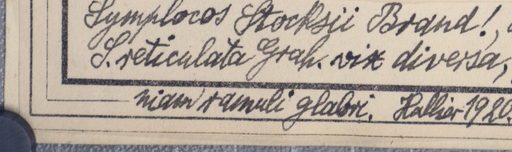 Symplocos Stocksii Brand!,
S. reticulata Grah. vix diversa,
niam ramuli glabri. Hallier 1920.